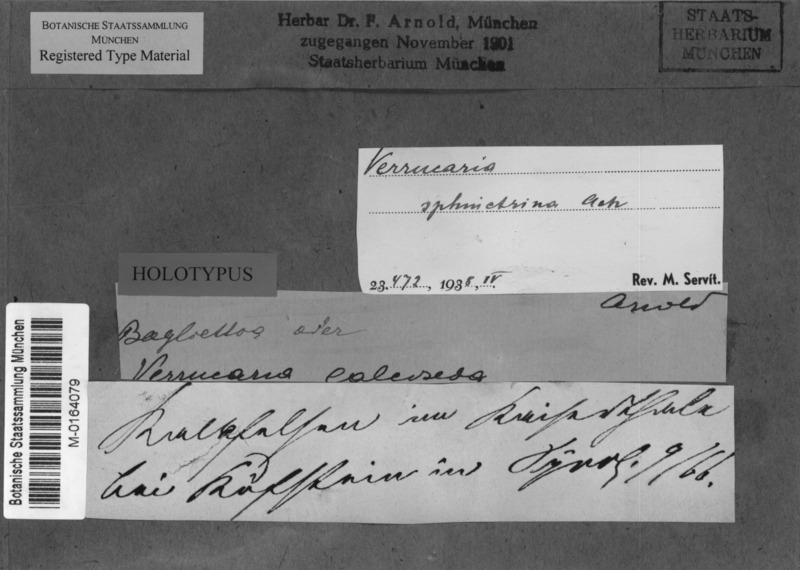 BOTANISCHE STAATSSAMMLUNG
MÜNCHEN
Registered Type Material
Herbar Dr. F. Arnold, München
zugegangen November 1901
Staatsherbarium München
STAATS-
HERBARIUM
MÜNCHEN
Verrucaria
sphinctrina Ach
23.472, 1938, IV.
Rev. M. Servít.
HOLOTYPUS
Arnold
Bagliettoa oder
Verrucaria calciseda
Kalkfelsen im Kaiserthale
bei Kufstein in Tyrol. 9/66.
Botanische Staatssammlung München
M-0164079